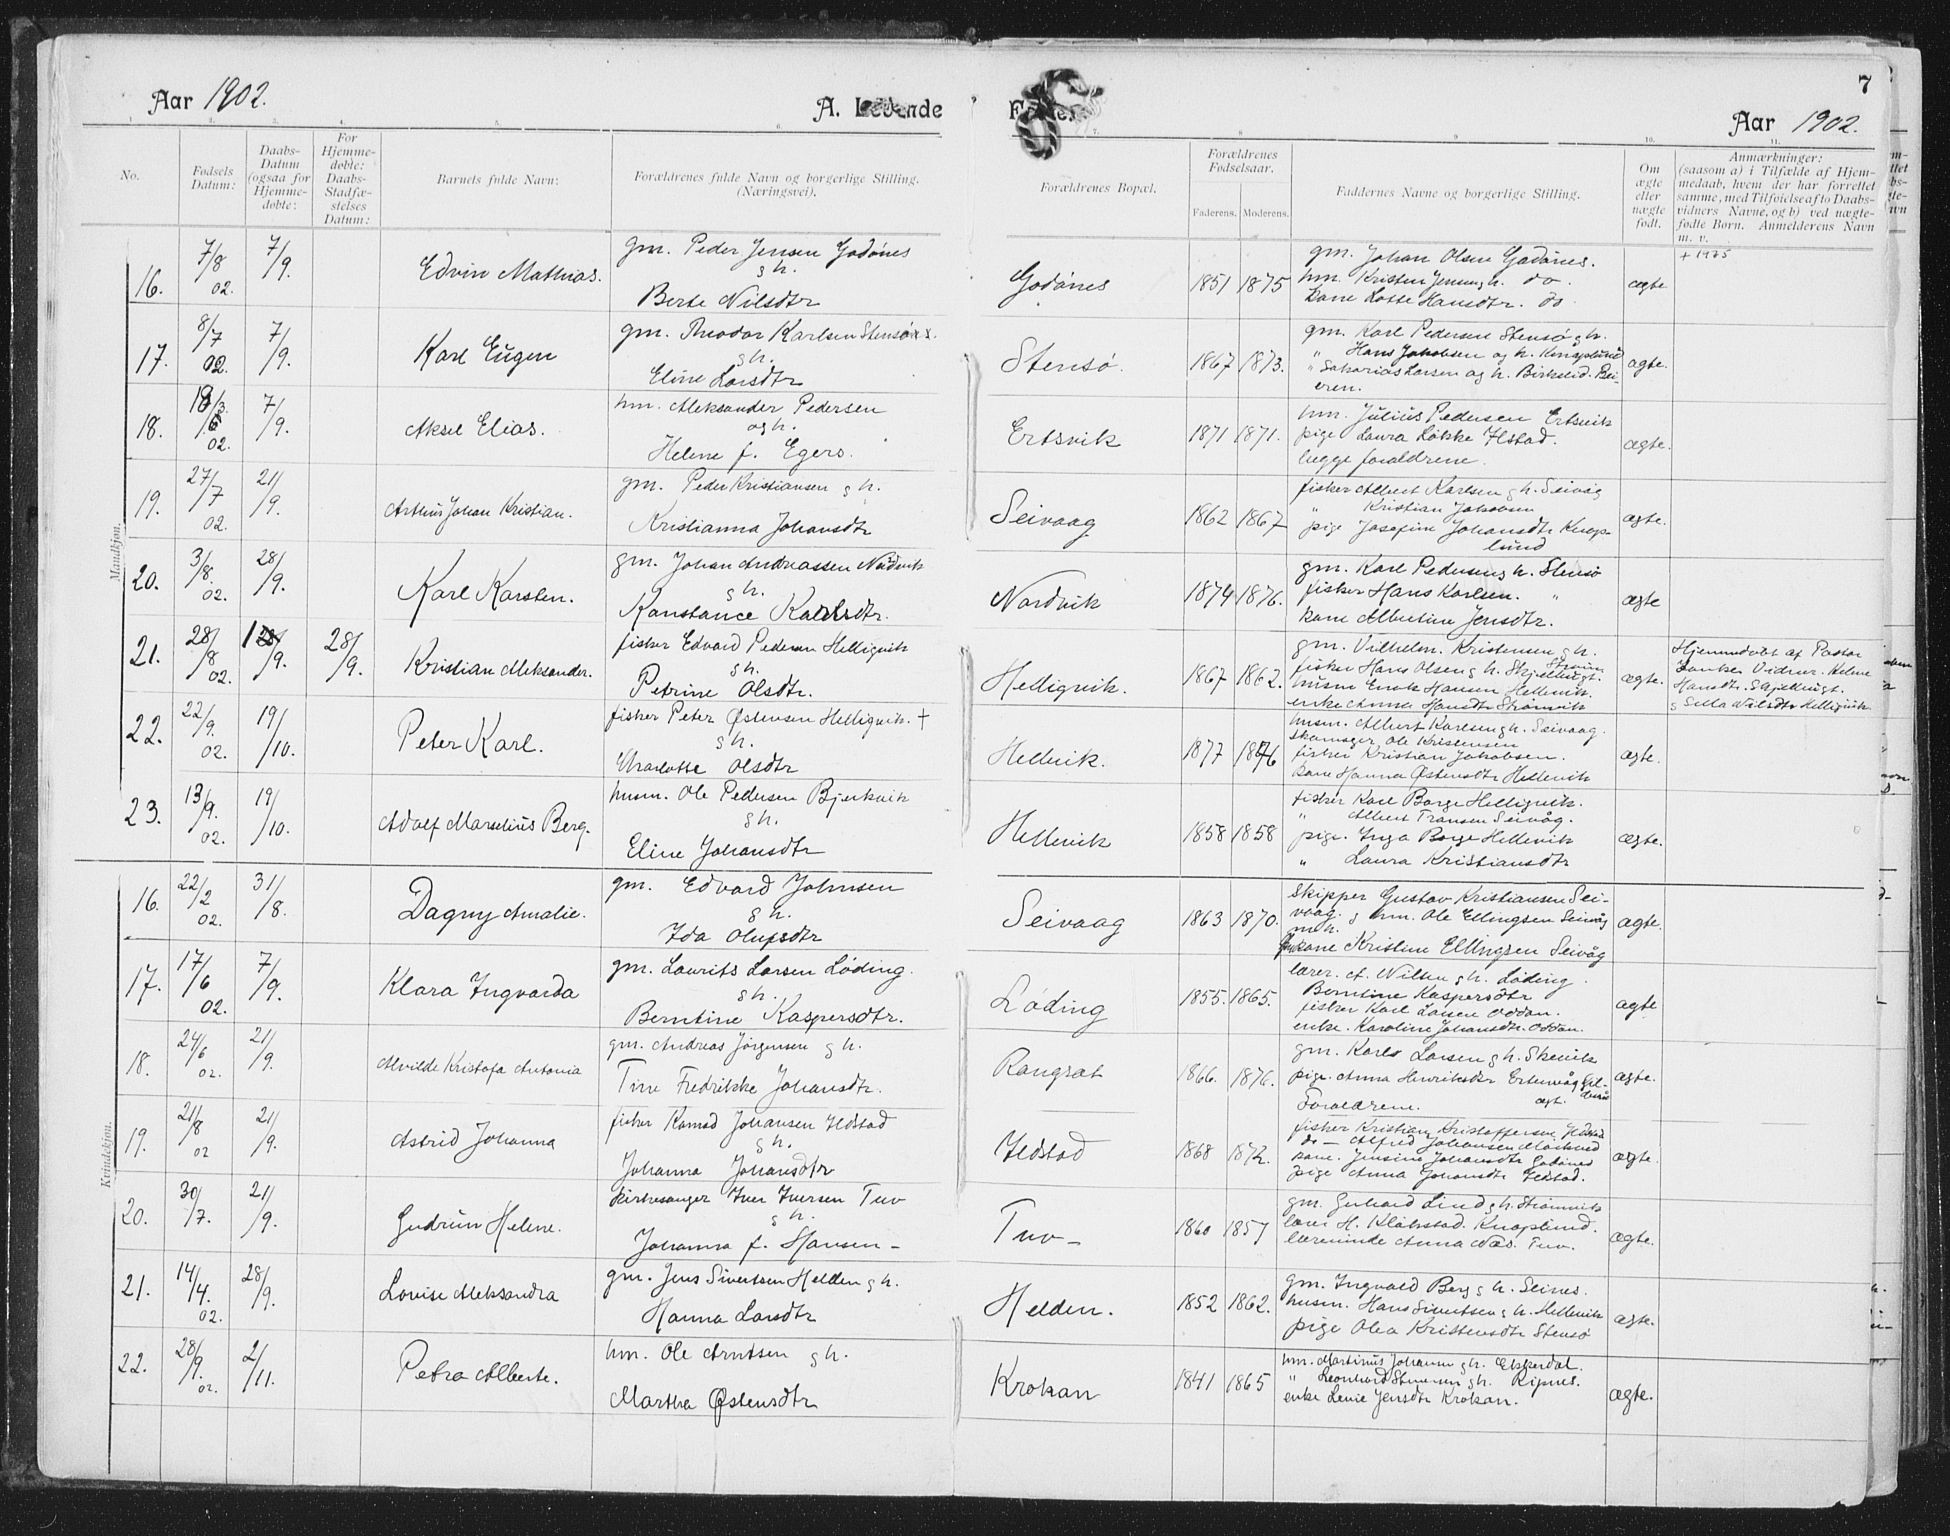 Aar 1902.
A. Levende
1. 2. 3. 4. 5. 6.
No.
Fødsels Datum:
Daabs-Datum (ogsaa for Hjemmedøbte:
For Hjemmedøbte: Daabs-Stadfæstelses Datum:
Barnets fulde Navn:
Forældrenes fulde Navn og borgerlige Stilling. (Næringsvei).
Mandkjøn.
16. 7/8 02. 7/9. Edvin Mathias. gm. Peder Jensen Godønes
g h.
Berte Nilsdtr
17. 8/7 02. 7/9. Karl Eugen gm. Theodor Karlsen Stensø
g h.
Eline Larsdtr
18. 02. 7/9. Aksel Elias. hm. Aleksander Pedersen
og h.
Helene f. Egers.
19. 27/7 02. 21/9. Arthur Johan Kristian. gm. Peder Kristiansen g h.
Kristianna Johansdtr
20. 3/8. 02. 28/9. Karl Karsten. gm. Johan Andreassen Nordvik
g h.
Konstance Karlsdtr.
21. 28/8 02. 1/9. 28/9. Kristian Aleksander. fisker Edvard Pedersen Helligvik
g h.
Petrine Olsdtr.
22. 22/9. 02. 19/10. Peter Karl. fisker Peter Østensen Helligvik. +
g h.
Charlotte Olsdtr
23. 13/9. 02. 19/10. Adolf Marselius Berg. husm. Ole Pedersen Bjerkvik
g h.
Eline Johansdtr
Kvindekjøn.
16. 22/2 02. 31/8. Dagny Amalie. gm. Edvard Johnsen
g h.
Ida Olufsdtr
17. 17/6 02. 7/9. Klara Ingvarda gm. Laurits Larsen Løding.
g h.
Berntine Kaspersdtr.
18. 24/6 02. 21/9. Alvilde Kristofa Antonia gm. Andreas Jørgensen g h.
Tine Fredrikke Johansdtr.
19. 21/8 02 21/9. Astrid Johanna fisker Konrad Johansen Ildstad
g h.
Johanna Johansdtr
20. 30/7. 21/9. Gudrun Helene. kirkesanger Iver Iversen Tuv
g h.
Johanna f. Hansen -
21. 14/4. 02. 28/9. Lovise Aleksandra gm. Jens Sivertsen Helden g h.
Hanna Larsdtr
22. 28/9. 02. 2/11. Petra Alberte. hm. Ole Arntsen g h.
Martha Østensdtr
7
Fødte.
Aar 1902.
7. 8. 9. 10. 11.
Forældrenes Bopæl.
Forældrenes Fødselsaar.
Faderens. Moderens.
Faddernes Navne og borgerlige Stilling.
Om ægte eller uægte født.
Anmærkninger:
(saasom a) i Tilfælde af Hjemmedaab, hvem der har forrettet samme, med Tilføielse af to Daabsvidners Navne, og b) ved uægtefødte Børn. Anmelderens Navn m. v.
+ 1975
Godønes 1851 1875 gm. Johan Olsen Godønes.
hm. Kristen Jensen g h. do.
kone Lotte Hansdtr. do
ægte
Stensø. 1867 1873. gm. Karl Pedersen Stensø g h.
" Hans Jakobsen og h. Knaplund
" Sakarias Larsen og h. Birkelid. Bei-
eren.
ægte.
Ertsvik 1871 1871. hm. Julius Pedersen Ertsvik
pige Laura Løkke Ilstad.
begge forældrene.
ægte.
Seivaag 1862 1867 fisker Albert Karlsen g h. Seivåg
" Kristian Jakobsen
pige Josefine Johansdtr Knap-
lund
ægte.
Nordvik 1874 1876. gm. Karl Pedersen g h. Stensø
fisker Hans Karlsen. "
kone Albertine Jensdtr.
ægte
Helligvik. 1867 1862. gm. Vilhelm Kristensen g h.
fisker Hans Olsen g h. Skjellbugt.
husm Enok Hansen Hellevik.
enke Anna Hansdtr Strømvik
ægte.
Hjemmedøbt af Pastor
Vidner. Helene
Hansdtr. Skjellbugt.
g Sella Nilsdtr Helligvik
Hellevik. 1877 1876 husm. Albert Karlsen g h. Seivaag.
skomager Ole Kristensen
fisker Kristian Jakobsen.
kone Hanna Østensdtr Hellevik
ægte.
Hellevik 1858 1858 fisker Karl Borge Helligvik.
" Albert Fransen Seivåg.
pige. Inga Borge Hellevik
" Laura Kristiansdtr
ægte.
Seivaag 1863 1870. skipper Gustav Kristiansen Sei-
vaag. g hm. Ole Ellingsen Seivåg
m h.
kone Kristine Ellingsen Seivåg
ægte.
Løding 1855. 1865. lærer. A. Nilsen g h. Løding.
Berntine Kaspersdtr
fisker Karl Larsen Oddan.
enke. Karoline Johansdtr. Oddan.
ægte
Rangsat 1866. 1876. gm. Karl Larsen g h. Skevik
pige. Anna Henriksdtr Ertenvåg Gil-
deskål
Forældrene.
ægte.
Ildstad 1868 1872. fisker Kristian Kristoffersen. Ildstad
do - Alfred Johansen
kone. Jensine Johansdtr Godønes
pige Anna Johansdtr Ildstad.
ægte.
Tuv- 1860 1857 gm. Gerhard Lind g h. Strømvik
lærer H. Klokstad. Knaplund.
lærerinde Anna Næs. Tuv.
ægte.
Helden. 1852 1862. gm. Ingvald Berg g h. Seines.
husm. Hans Sivertsen g h. Hellevik
pige Olea Kristensdtr Stensø
ægte.
Krokan 1841 1865 hm. Martinus Johansen g h. Elskerdal.
" Leonhard g h. Ripnes.
enke Lenie Jensdtr Krokan.
ægte.